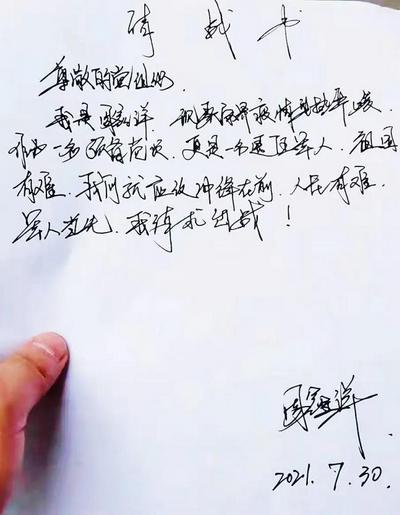 请战书
尊敬的党组织：
我是周 洋 现张家界疫情形势严峻，
作为一名预备党员，更是一名退伍军人，祖国
有难，我们就应该冲锋在前，人民有难，
军人当先，我请求出战！
周 洋
2021.7.30.